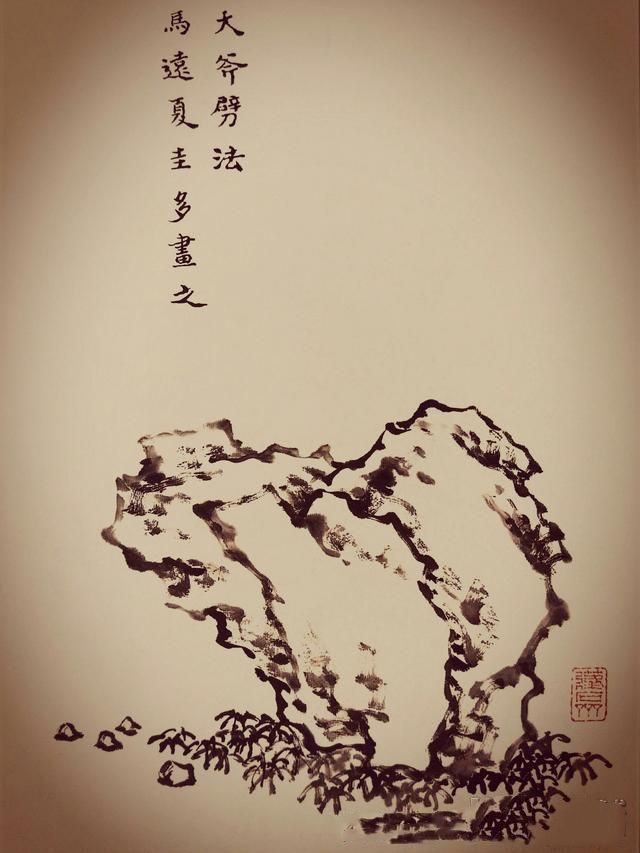 大斧劈法
馬遠夏圭多畫之